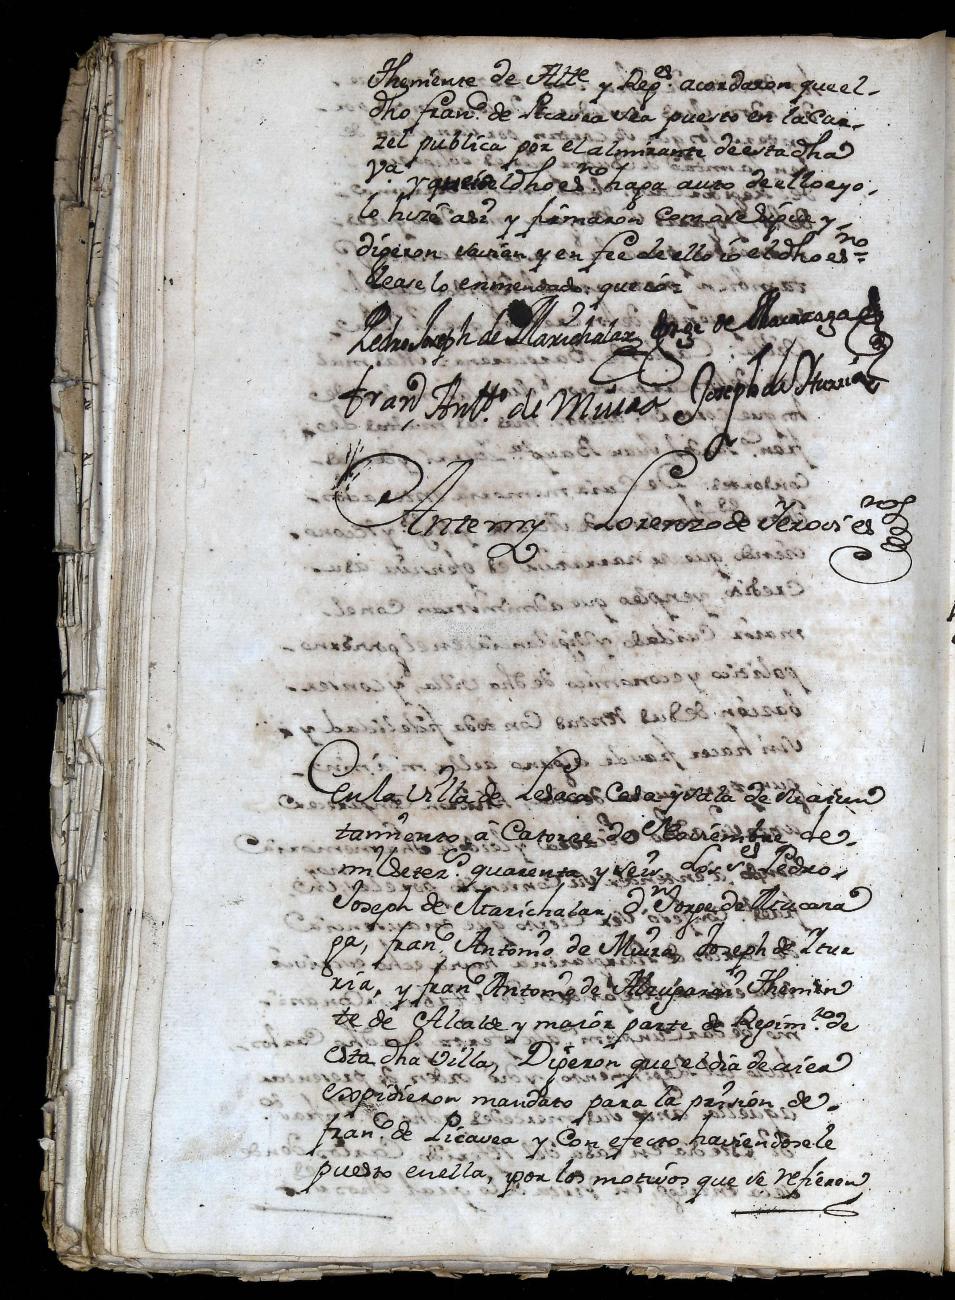 Themiente de Alle. y Regres. acordaron que el-
dho franco. de Picavea sea puesto en la Car-
zel publica por el almirante de esta dha
va. y que el dho esno. haga auto de ello e yo,
le hize asi y firmaron como se sigue y
digeron savian y en fee de ello io el dho esno=
Pedro Joseph de Marichalar Jorge de
Franco Antto. de Miura Joseph de Yturria
Ante my Lorenzo de Yerovi esno
En la villa de Lesaca Casa y sala de su aiun
tamiento á Catorze de Noviembre de
mil setezs. quarenta y seis los sres. Pedro
Joseph de Marichalar, dn. Jorge de
ga, franco. Antonio de Miura, Joseph de Ytur
ria, y franco. Antonio de Themien
te de Alcalde y maior parte de Regimto. de
esta dha villa, Digeron que el dia de aier
expidieron mandato para la prision de
franco. de Picavea y con efecto haviendosele
puesto en ella, por los motivos que se refieren